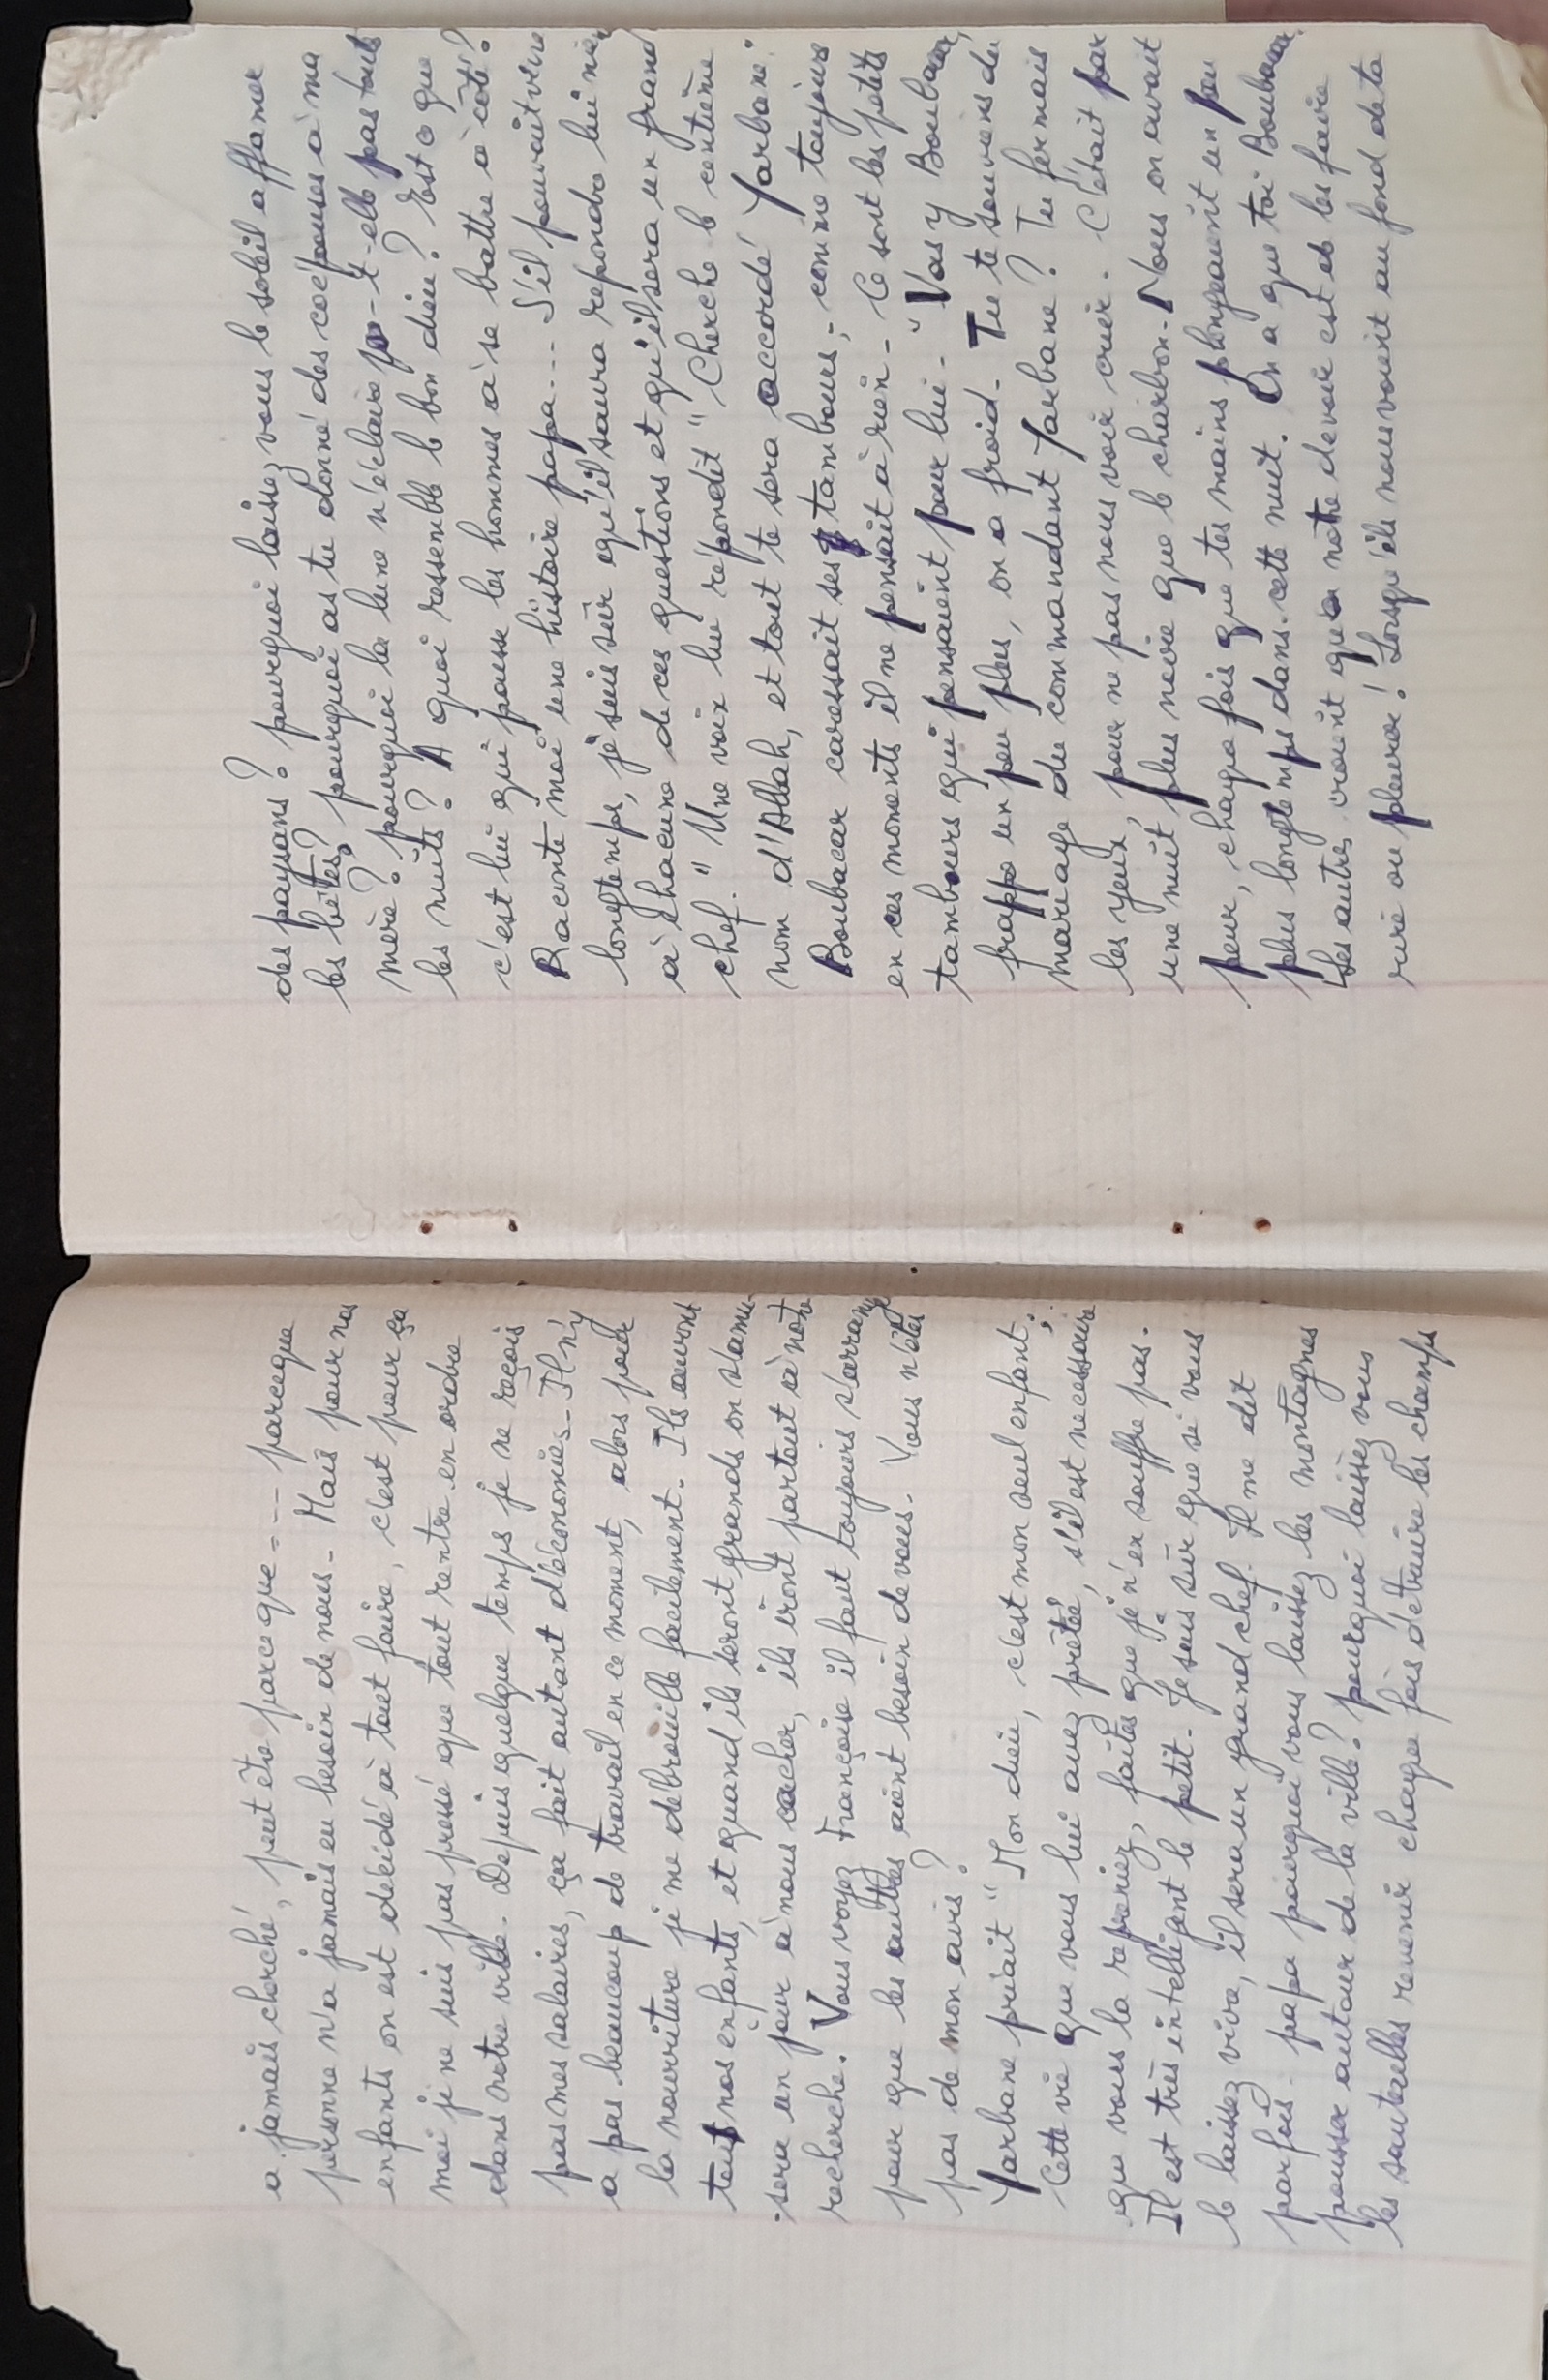 a jamais cherché, peut être parce que --- parceque
personne n'a jamais eu besoin de nous - Mais pour nos
enfants on est décidé à tout faire, c'est pour ça
moi je ne suis pas pressé que tout rentre en ordre
dans notre ville. Depuis quelque temps je ne reçois
pas mes salaires, ça fait autant d'économies - Il n'y
a pas beaucoup de travail en ce moment, alors pour
la nourriture je me débrouille facilement. Ils auront
tout nos enfants, et quand ils seront grands on s'amu-
sera un jour à nous cacher, ils iront partout à notre
recherche. Vous voyez Françoise il faut toujours s'arranger
pour que les autres aient besoin de vous. Vous n'êtes
pas de mon avis ?
Yarbane priait " Mon dieu, c'est mon seul enfant ;
Cette vie que vous lui avez prêtée, s'il est necessaire
que vous la repreniez, faites que je n'en souffre pas.
Il est très intelligent le petit. Je suis sûr que si vous
le laissez vivre, il sera un grand chef. Il me dit
parfois - papa pourquoi vous laissez les montagnes
pousser autour de la ville? pourquoi laissez vous
les sauterelles revenir chaque fois détruire les champs
des paysans ? pourquoi laissez vous le soleil affamer
les bêtes? pourquoi as tu donné des coépouses à ma
mère ? pourquoi la lune n'éclaire -t-elle pas touts
les nuits ? A quoi ressemble le bon dieu ? Est ce que
c'est lui qui pousse les hommes à se battre à côté ?
Raconte moi une histoire papa... S'il pouvait vivre
longtemps, je suis sûr qu'il saura repondre lui même
à chacune de ces questions et qu'il sera un grand
chef. " Une voix lui répondit " Cherche le centième
nom d'Allah, et tout te sera accordé Yarbane :
Boubacar caressait ses tambours ; - comme toujours
en ces moments il ne pensait à rien - Ce sont les petits
tambours qui pensaient pour lui - " Vas y Boubacar,
frappe un peu plus, on a froid - Tu te souviens du
mariage du commandant Yarbane ? Tu fermais
les yeux, pour ne pas nous voir crier. C'était par
une nuit plus noire que le charbon - Nous on avait
peur, chaque fois que tes mains plongeaient un peu
plus longtemps dans cette nuit. On a que toi Boubacar
Les autres croient que notre devoir est de les faire
rire ou pleurer! Lorsqu'ils nous voient au fond de ta